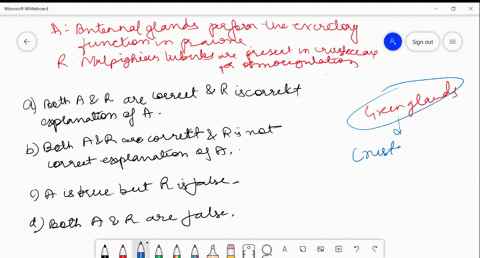 Microsoft Whiteboard
Sign out
A: Antennal glands perform the excretory
function in prawns.
R. Malpighian tubules are present in crustaceae
for osmoregulation
a) Both A & R are correct & R is correct
explanation of A.
b) Both A & R are correct & R is not
correct explanation of A.
c) A is true but R is false.
d) Both A & R are false.
Green glands
Crust